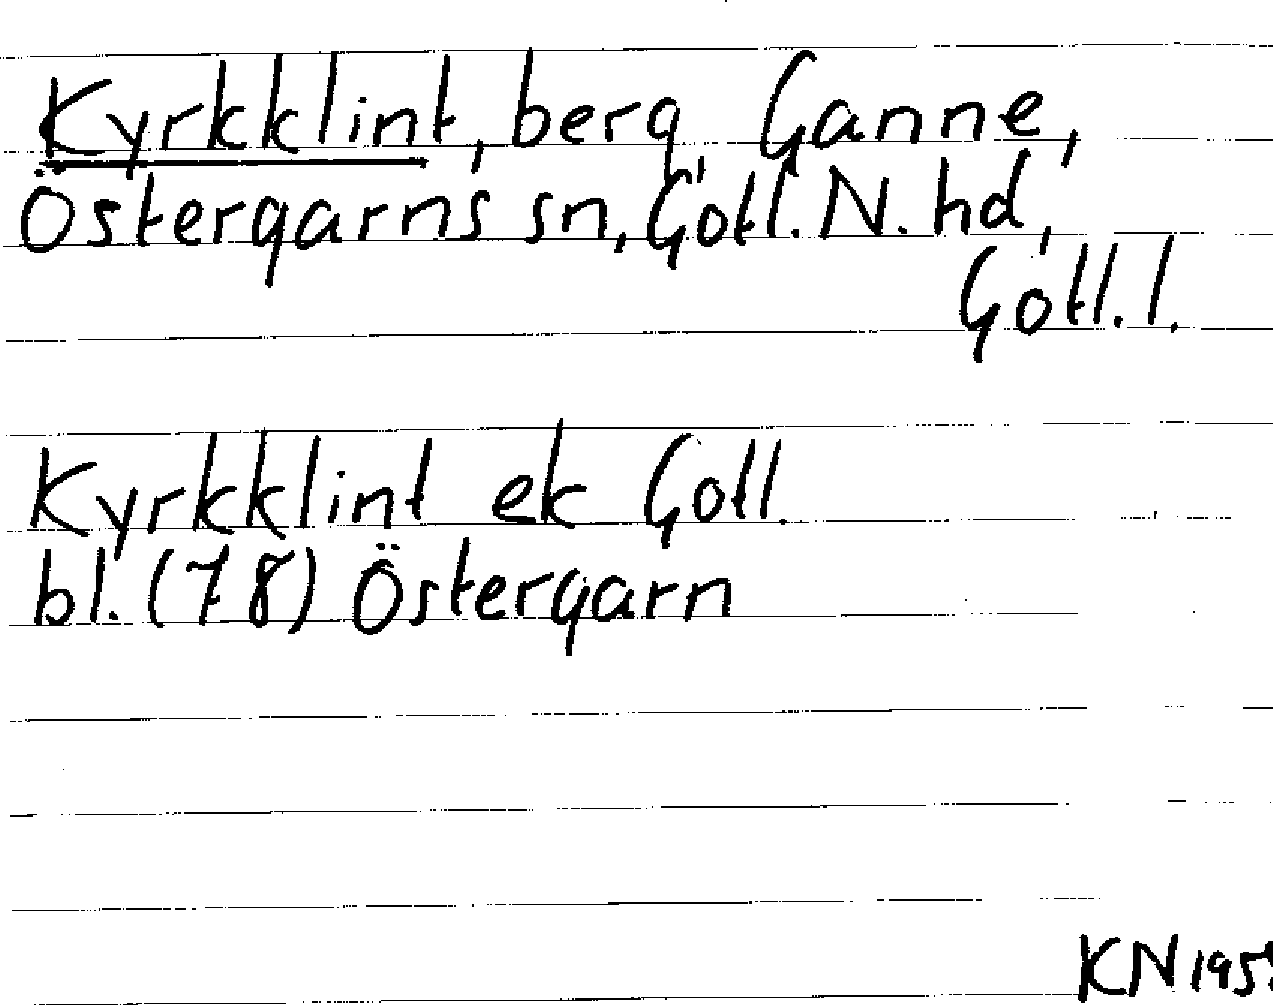 Kyrkklint, berg, Ganne,
Östergarns sn, Gotl. N. hd,
Gotl. l.
Kyrkklint ek Gotl.
bl. (78) Östergarn
KN